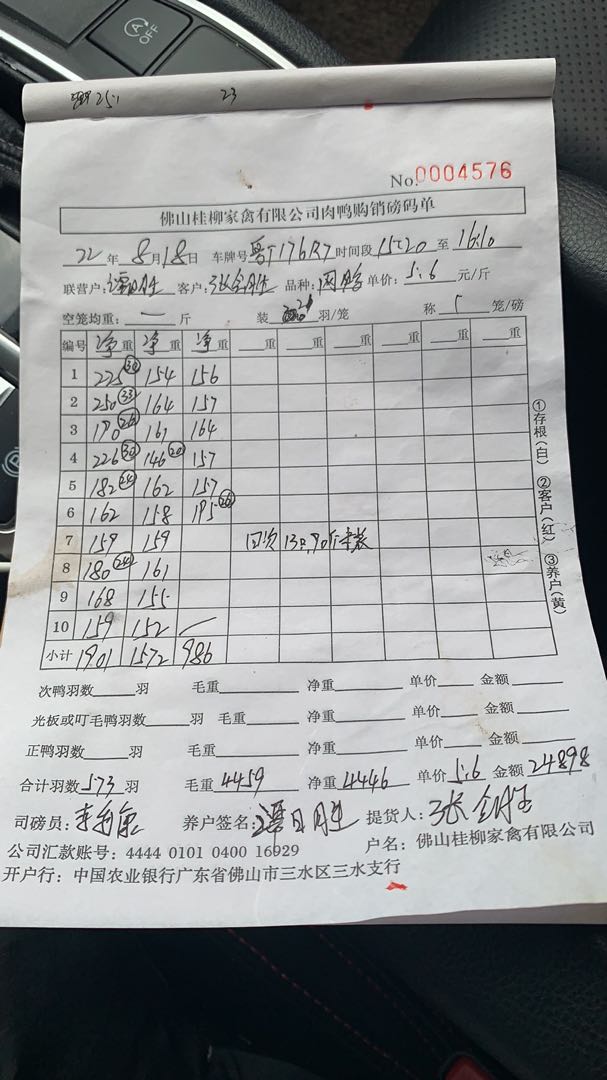 OFF
251 23
No. 0004576
佛山桂柳家禽有限公司肉鸭购销磅码单
22年8月18日 车牌号 T176R7 时间段 15:20 至 16:10
联营户:谭日胜 客户:张金胜 品种: 单价:5.6 元/斤
空笼均重:一斤 装 21 羽/笼 称 5 笼/磅
编号 净重 净重 净重 重 重 重 重 重 重
1 225 (30) 154 156
2 250 (33) 164 157
3 190 (26) 161 164
4 226 (30) 146 (20) 157
5 182 (24) 162 157
6 162 158 195 (26)
7 159 159 回次13只,90斤未装
8 180 (24) 161
9 168 155
10 159 152 一
小计 1901 1572 986
①存根(白) ②客户(红) ③养户(黄)
次鸭羽数 羽 毛重 净重 单价 金额
光板或叮毛鸭羽数 羽 毛重 净重 单价 金额
正鸭羽数 羽 毛重 净重 单价 金额
合计羽数 573 羽 毛重 4459 净重 4446 单价 5.6 金额 24898
司磅员: 养户签名:谭日胜 提货人:张金胜
公司汇款账号:4444 0101 0400 16929 户名:佛山桂柳家禽有限公司
开户行:中国农业银行广东省佛山市三水区三水支行